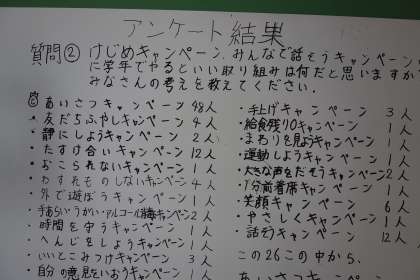 アンケート結果
質問② けじめキャンペーン、みんなで話そうキャンペーン
に学年でやるといい取り組みは何だと思いますか
みなさんの考えを教えてください.
あいさつキャンペーン 48人
・友だちふやしキャンペーン 4人
・静にしようキャンペーン 2人
・たすけ合いキャンペーン 12人
・おこられないキャンペーン 1人
・わすれものしないキャンペーン 4人
・外で遊ぼうキャンペーン 1人
・手あらい・うがい・アルコール消毒キャンペーン 2人
・時間を守うキャンペーン 1人
・へんじをしようキャンペーン 1人
・いいとこみつけキャンペーン 3人
・自分の意見をいおうキャンペーン 1人
・手上げキャンペーン 3人
・給食残り0キャンペーン 1人
・まわりを見ようキャンペーン 1人
・運動しようキャンペーン 1人
・大きな声をだそうキャンペーン 2人
・1分前着席キャンペーン 1人
・笑顔キャンペーン 6人
・やさしくキャンペーン 1人
・話そうキャンペーン 12人
この26この中から、
あいさつキャンペーン